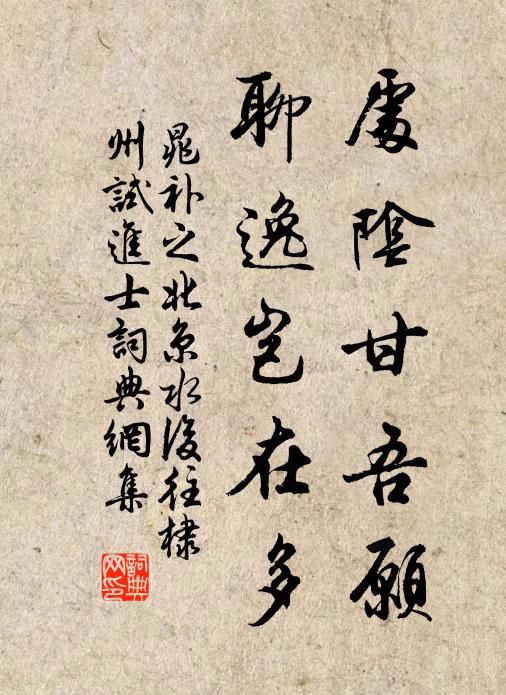 處陰甘吾願
聊逸豈在多
晁补之北京水後往棣
州試進士詞典網集
詞典网印